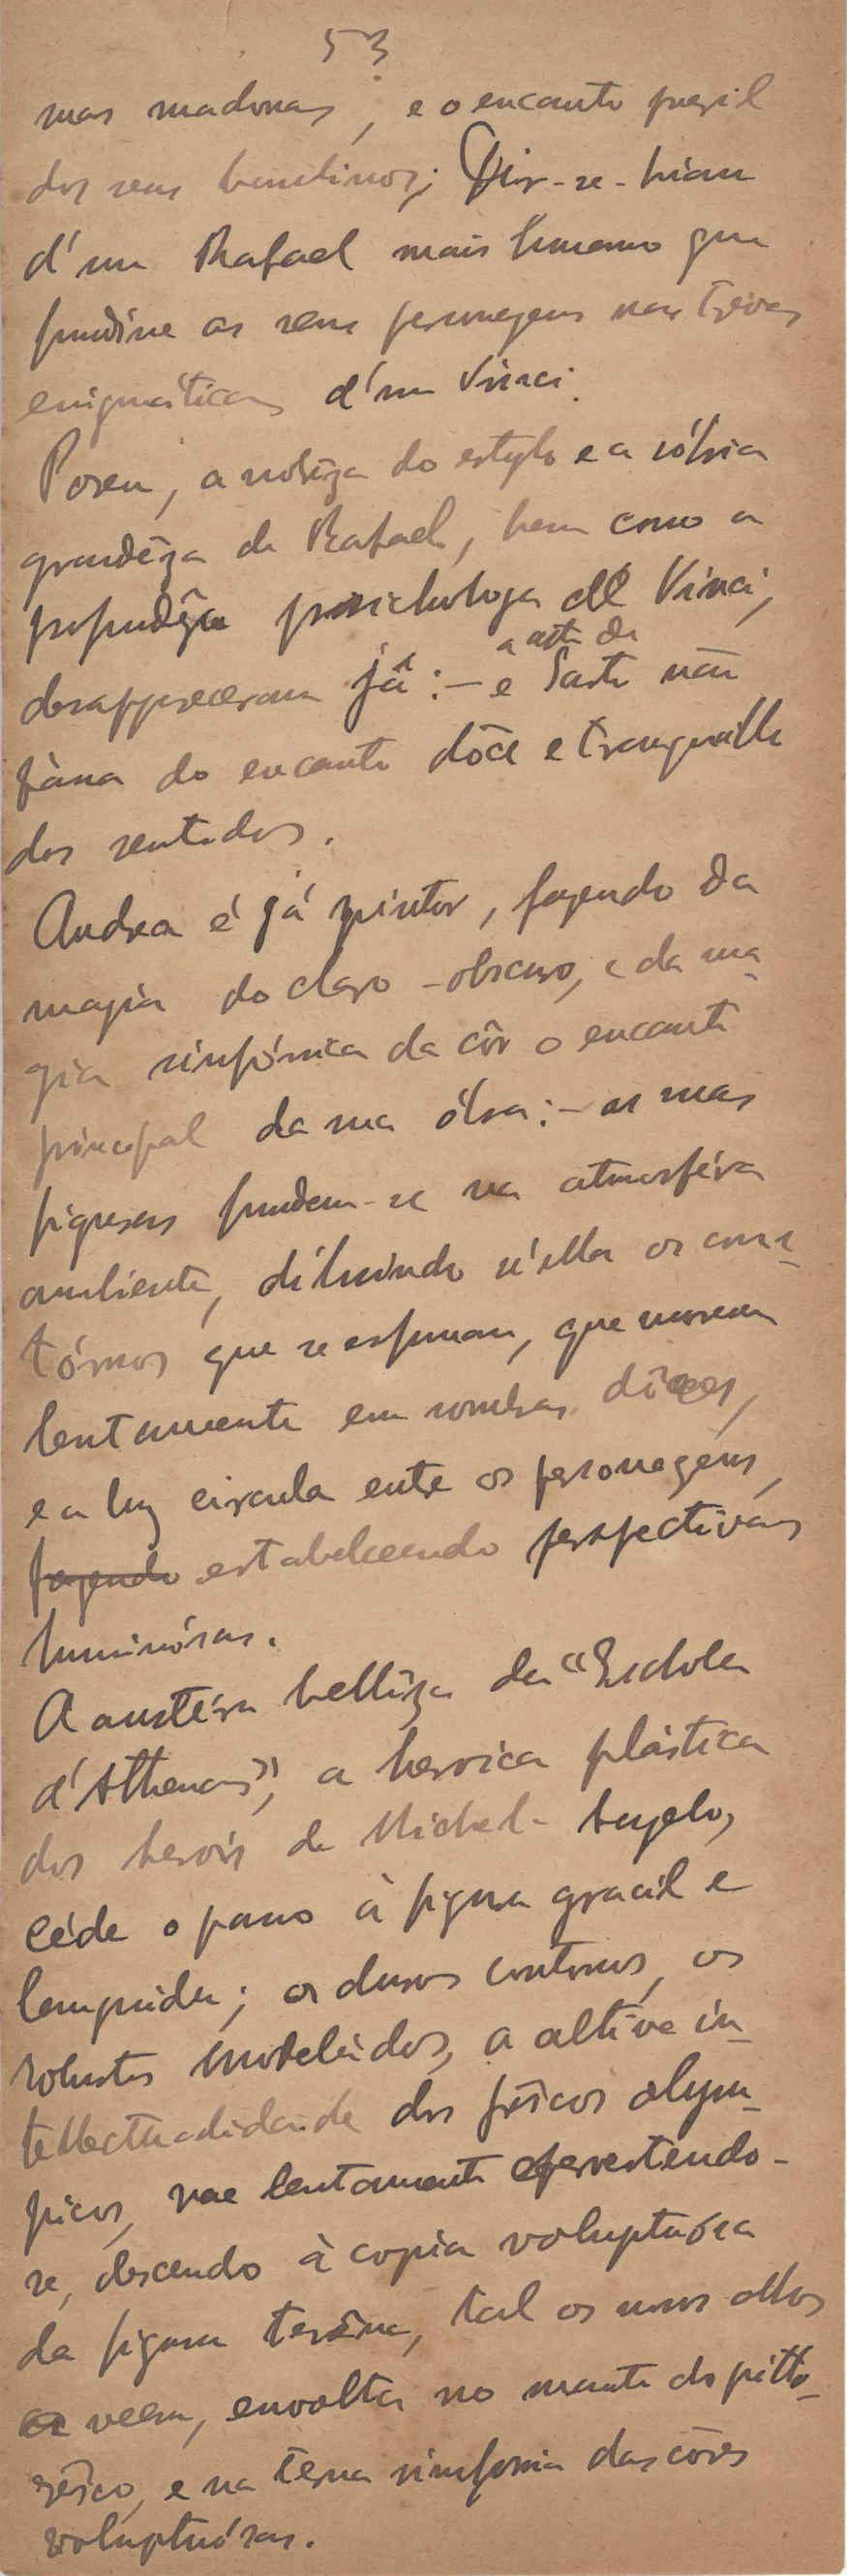 53
suas madonas, e o encanto fragil
dos seus bambinos; Dir-se-hiam
d'um Rafael mais humano que
fundisse as seus personagens nas trévas
enigmáticas d'um Vinci.
Porem, a nobrêza do estylo e a sóbria
grandêza de Rafael, bem como a
profundêza psichologa de Vinci,
desappareceram já :- e a arte de Sarto não
passa do encanto dôce e tranquillo
dos sentidos.
Andrea é já pintor, fazendo da
magia do claro-obscuro, e da ma-
gia sinfónica da côr o encanto
principal da sua óbra :- as suas
figuras fundem-se na atmosféra
ambiente, diluindo n'ella os con-
tórnos que se esfumam, que morrem
lentamente em sombras dôces,
e a luz circula entre os personagens,
fazendo estabelecendo perspectivas
luminósas.
A austéra bellêza da "Eschola
d'Athenas", a heroica plástica
dos herois de Michel-Angelo,
céde o passo à figura gracil e
languida; os duros contornos, os
robustos modelados, a altiva in-
tellectualidade dos frêscos olym-
picos, vae lentamente pervertendo-
se, descendo à copia voluptuósa
da figura terrêna, tal os nossos olhos
a veem, envolta no manto do pitto-
rêsco, e na terna sinfonia das côres
voluptuósas.